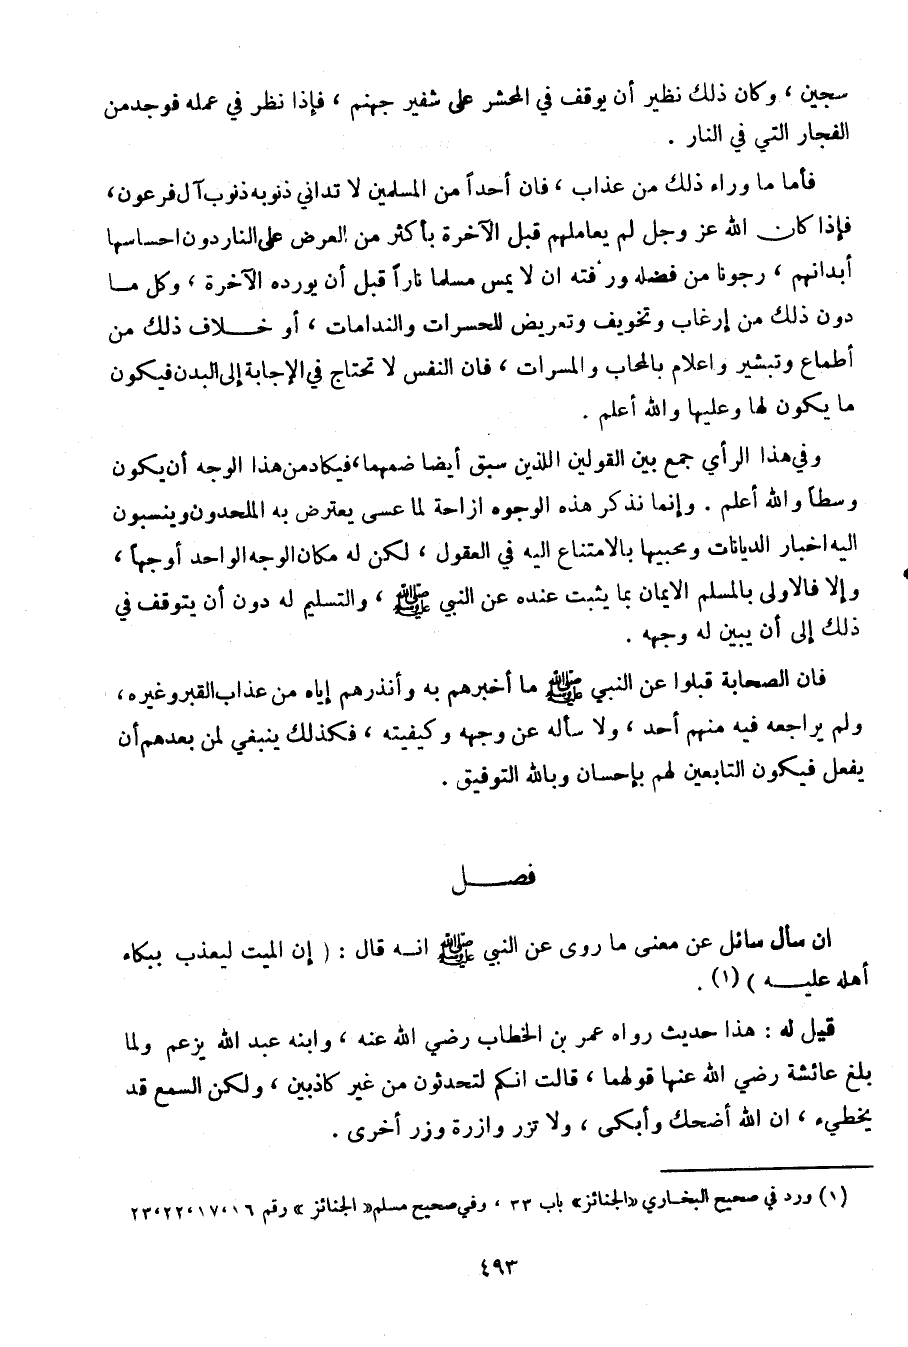 سجين ، وكان ذلك نظير أن يوقف في المحشر على شفير جهنم ، فإذا نظر في عمله فوجد من
الفجار التي في النار .
فأما ما وراء ذلك من عذاب ، فان أحداً من المسلمين لا تداني ذنوبه ذنوب آل فرعون ،
فإذا كان الله عز وجل لم يعاملهم قبل الآخرة بأكثر من العرض على النار دون احساسها
أبدانهم ، رجونا من فضله ورأفته ان لا يمس مسلما ناراً قبل أن يورده الآخرة ، وكل ما
دون ذلك من إرغاب وتخويف وتعريض للحسرات والندامات ، أو خلاف ذلك من
أطماع وتبشير واعلام بالمحاب والمسرات ، فان النفس لا تحتاج في الإجابة إلى البدن فيكون
ما يكون لها وعليها والله أعلم .
وفي هذا الرأي جمع بين القولين اللذين سبق أيضا ضمهما ، فيكاد من هذا الوجه أن يكون
وسطاً والله أعلم . وإنما نذكر هذه الوجوه ازاحة لما عسى يعترض به الملحدون وينسبون
اليه اخبار الديانات ومحبيها بالامتناع اليه في العقول ، لكن له مكان الوجه الواحد أوجهاً ،
وإلا فالاولى بالمسلم الايمان بما يثبت عنده عن النبي ﷺ ، والتسليم له دون أن يتوقف في
ذلك إلى أن يبين له وجهه .
فان الصحابة قبلوا عن النبي ﷺ ما أخبرهم به وأنذرهم إياه من عذاب القبر وغيره ،
ولم يراجعه فيه منهم أحد ، ولا سأله عن وجهه وكيفيته ، فكذلك ينبغي لمن بعدهم أن
يفعل فيكون التابعين لهم بإحسان وبالله التوفيق .
فصل
ان سأل سائل عن معنى ما روى عن النبي ﷺ انه قال : ( إن الميت ليعذب ببكاء
أهله عليه ) (١) .
قيل له : هذا حديث رواه عمر بن الخطاب رضي الله عنه ، وابنه عبد الله يزعم ولما
بلغ عائشة رضي الله عنها قولهما ، قالت انكم لتحدثون من غير كاذبين ، ولكن السمع قد
يخطيء ، ان الله أضحك وأبكى ، ولا تزر وازرة وزر أخرى .
(١) ورد في صحيح البخاري «الجنائز» باب ٣٣ ، وفي صحيح مسلم « الجنائز » رقم ١٦،١٧،٢٢،٢٣
٤٩٣